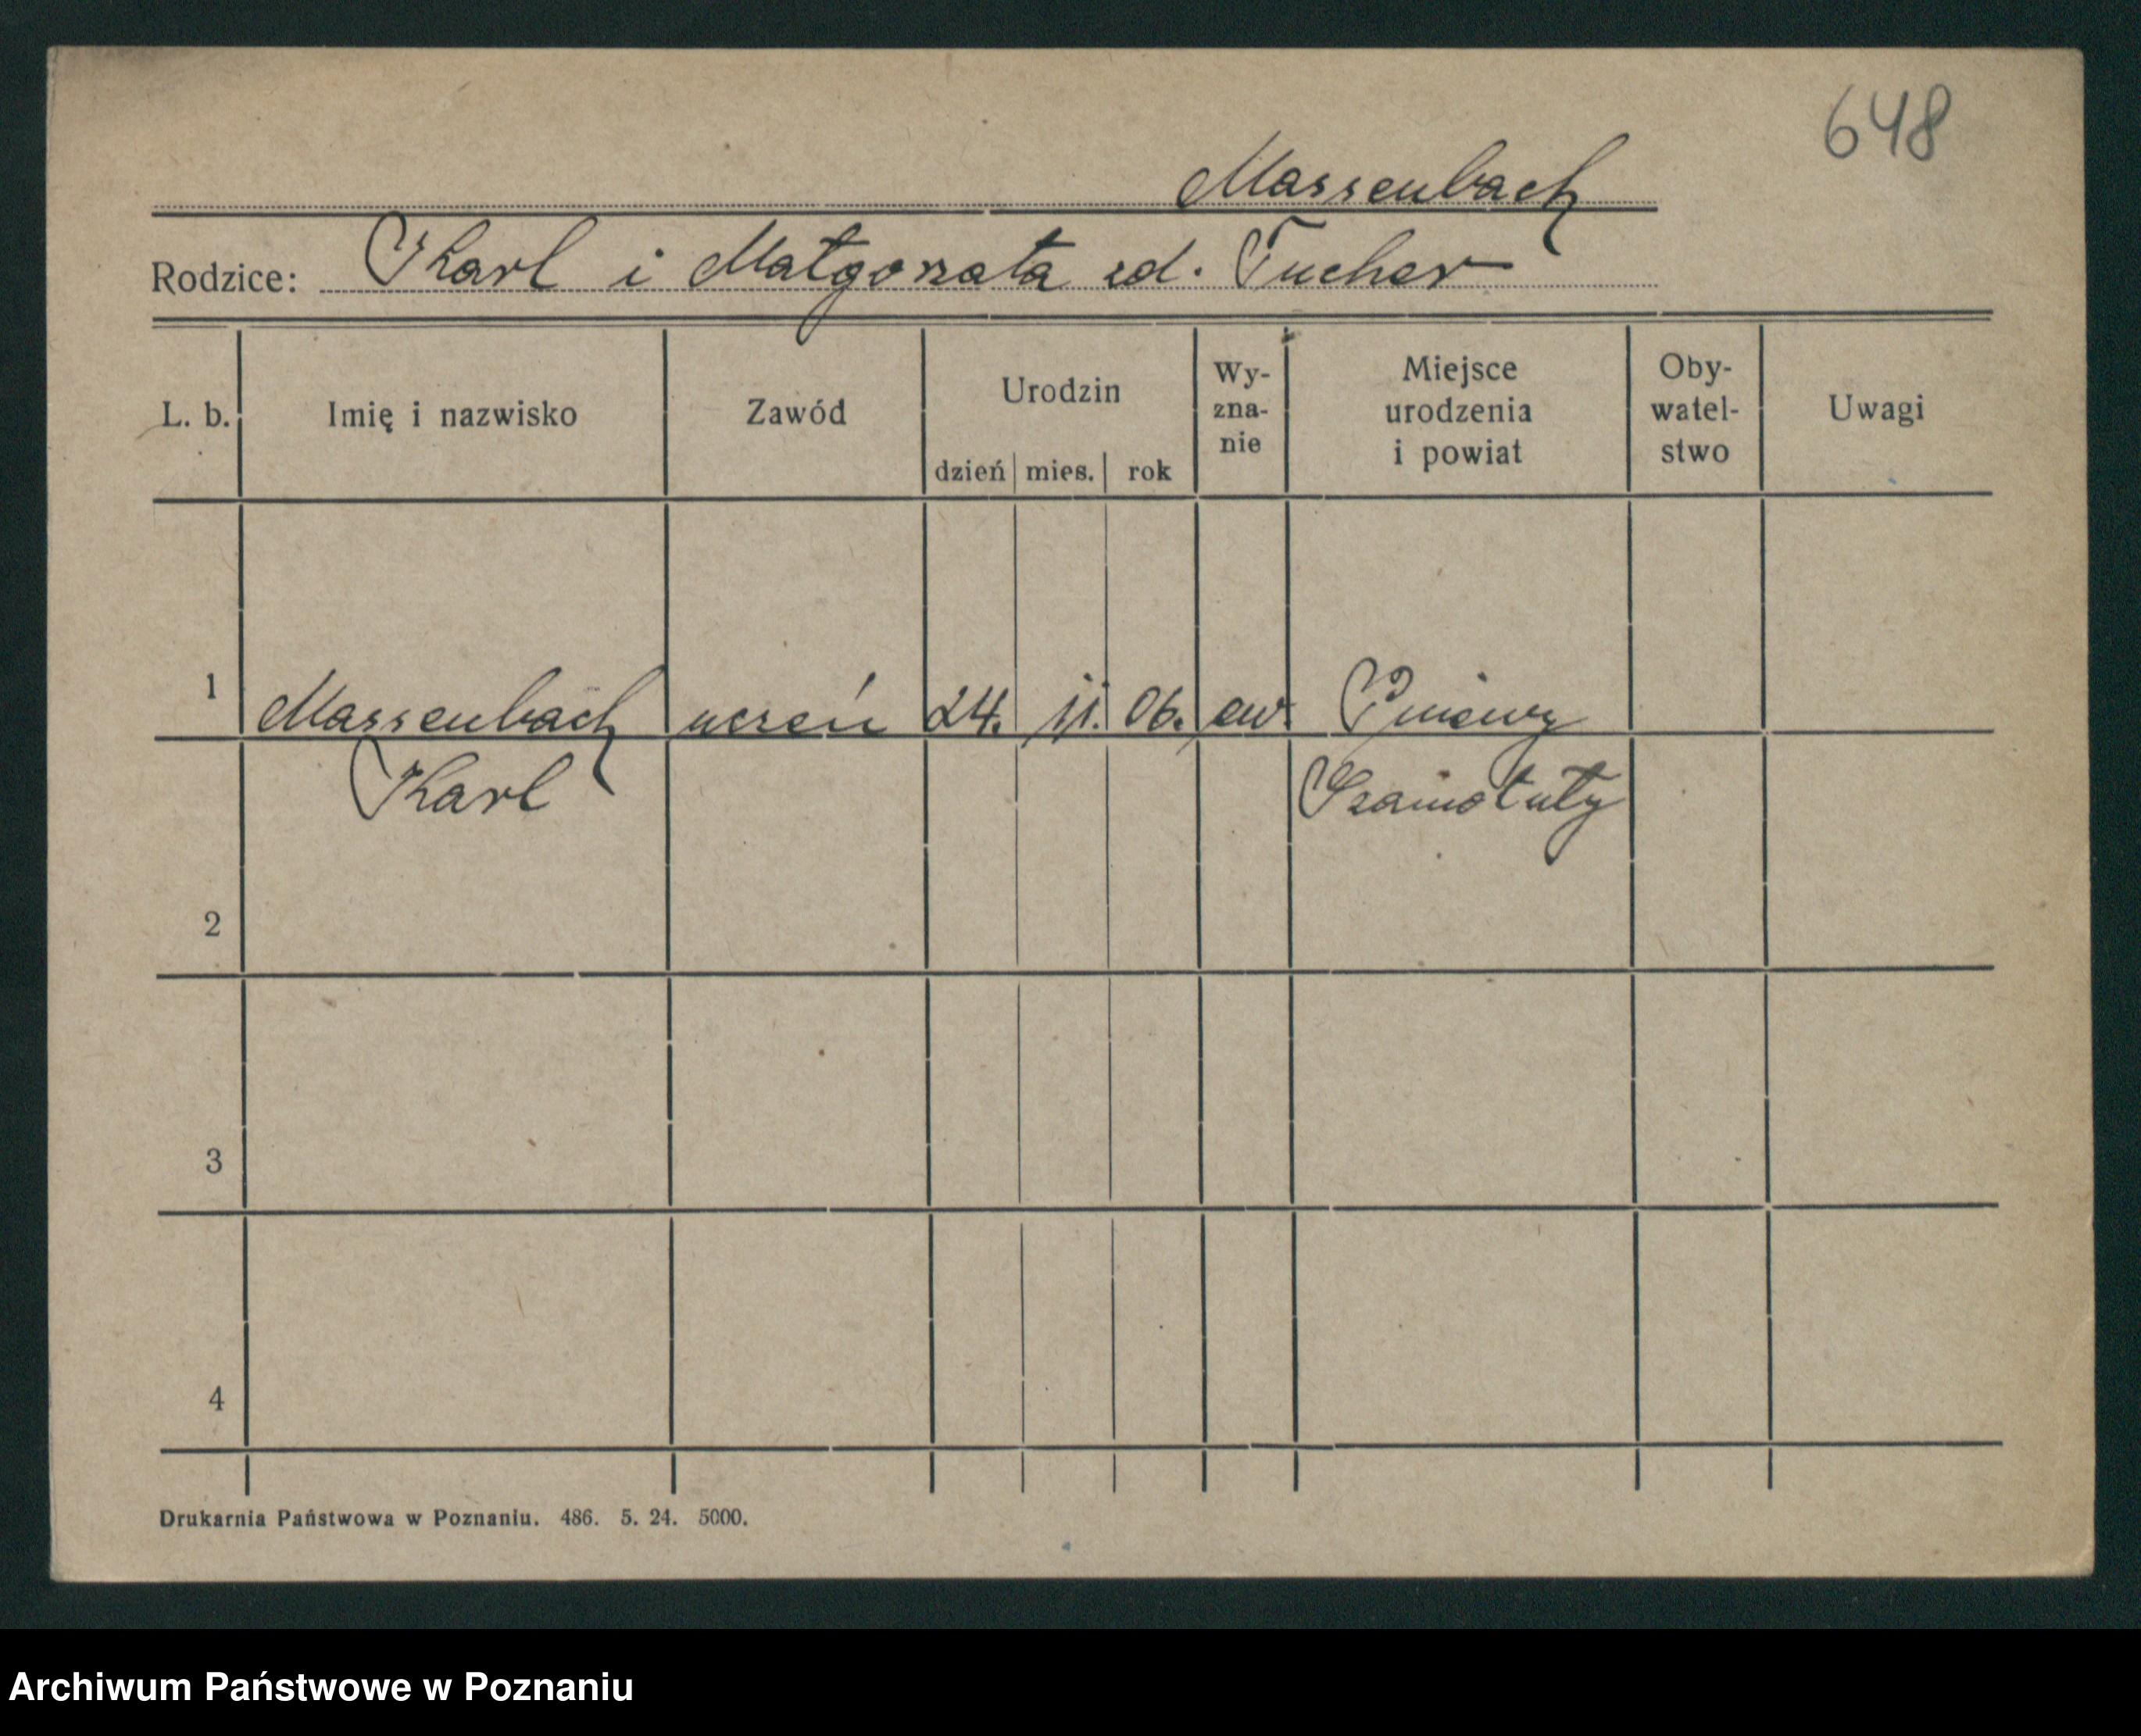 648
Massenbach
Rodzice: Karl i Małgorzata zd. Tucher
L. b. Imię i nazwisko Zawód Urodzin dzień mies. rok Wy-zna-nie Miejsce urodzenia i powiat Oby-watel-stwo Uwagi
1 Massenbach uczeń 24. 11. 06. ew. Pniewy
Karl Szamotuły
2
3
4
Drukarnia Państwowa w Poznaniu. 486. 5. 24. 5000.
Archiwum Państwowe w Poznaniu